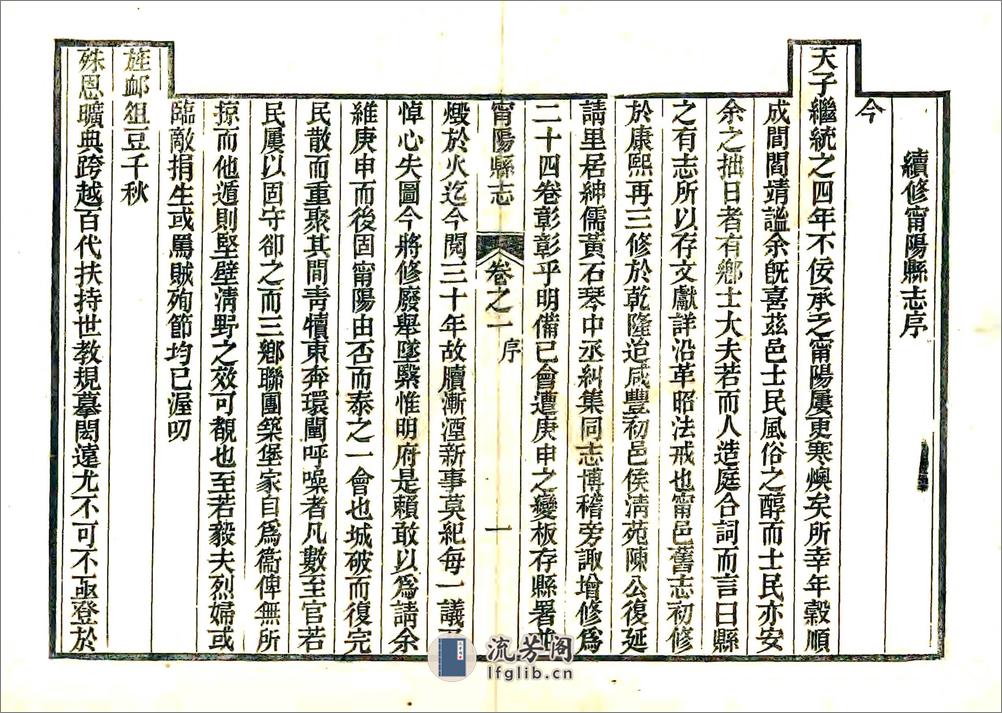 續修甯陽縣志序
今
天子繼統之四年不佞承乏甯陽屢更寒燠矣所幸年穀順
成閭閻靖謐余旣喜茲邑士民風俗之醇而士民亦安
余之拙日者有鄉士大夫若而人造庭合詞而言曰縣
之有志所以存文獻詳沿革昭法戒也甯邑舊志初修
於康熙再三修於乾隆迨咸豐初邑侯淸苑陳公復延
請里居紳儒黃石琴中丞糾集同志博稽旁諏增修爲
二十四卷彰彰乎明備已會遭庚申之變板存縣署並
甯陽縣志 卷之一 序 一
燬於火迄今閱三十年故牘漸湮新事莫紀每一議
悼心失圖今將修廢舉墜緊惟明府是賴敢以爲請余
維庚申而後固甯陽由否而泰之一會也城破而復完
民散而重聚其間靑犢東奔環闉呼噪者凡數至官若
民屢以固守卻之而三鄉聯團築堡家自爲衞俾無所
掠而他遁則堅壁淸野之效可覩也至若毅夫烈婦或
臨敵捐生或罵賊殉節均已渥叨
旌卹俎豆千秋
殊恩曠典跨越百代扶持世教規摹閎遠尤不可不亟登於
流芳阁
lfglib.cn